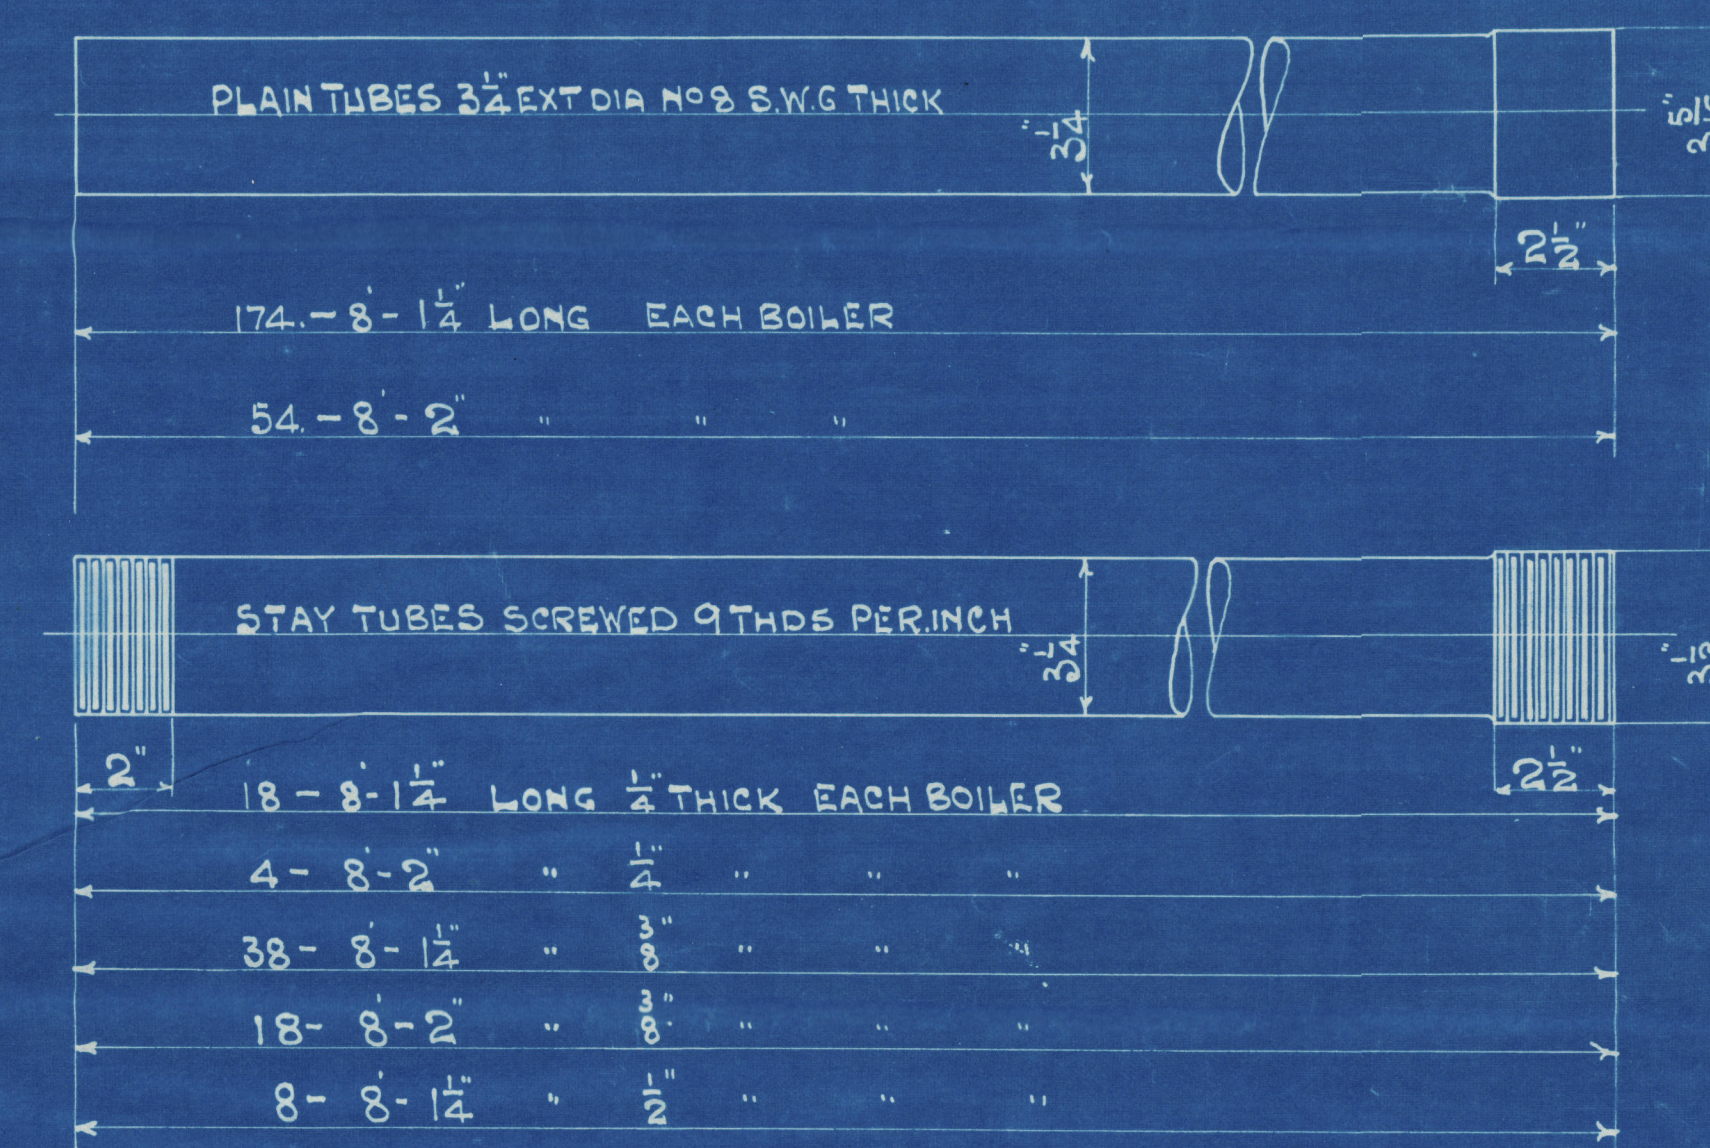 PLAIN TUBES 3 1/4" EXT DIA No 8 S.W.G THICK
3 1/4"
2 1/2"
174.- 8'- 1 1/4" LONG EACH BOILER
54.- 8'- 2" " " "
STAY TUBES SCREWED 9 THDS PER.INCH
3 1/4"
2"
2 1/2"
18 - 8'- 1 1/4" LONG 1/4" THICK EACH BOILER
4 - 8'- 2" " 1/4" " " "
38 - 8'- 1 1/4" " 3/8" " " "
18 - 8'- 2" " 3/8" " " "
8 - 8'- 1 1/4" " 1/2" " " "